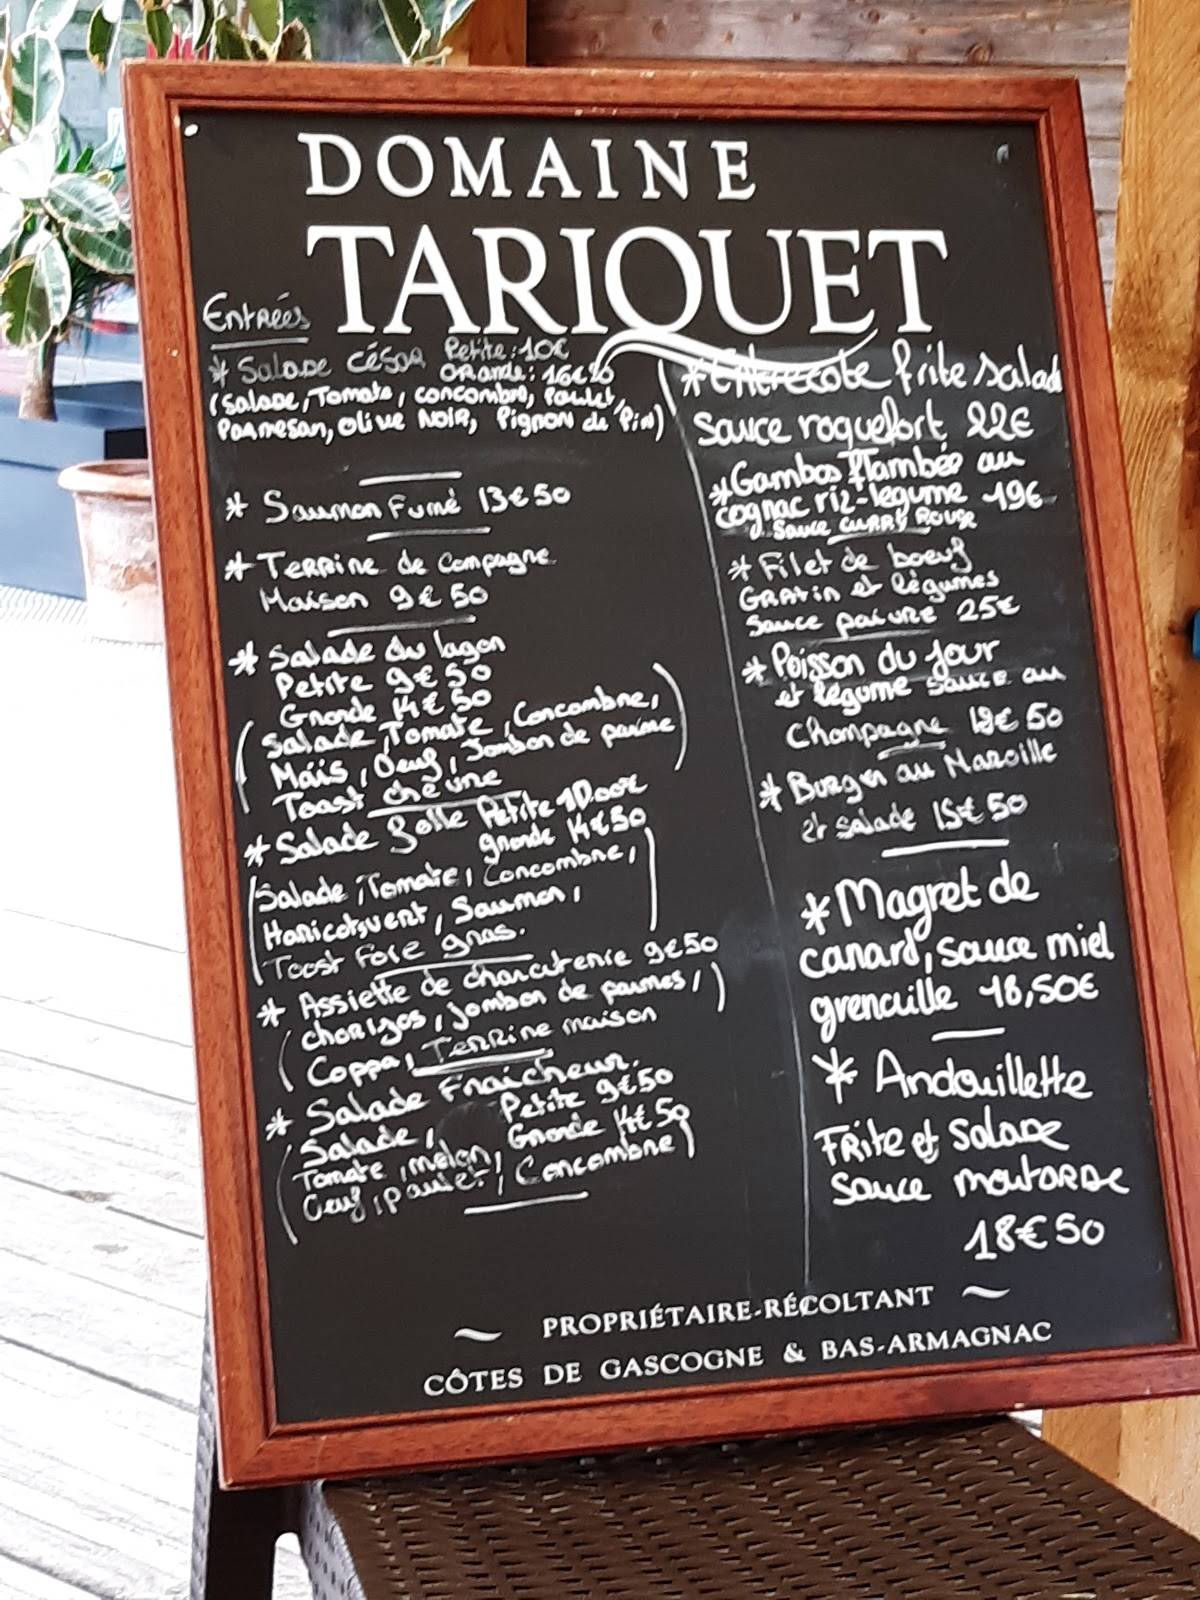 DOMAINE
TARIQUET
Entrées
* Salade César Petite : 10€
Grande : 16€50
(Salade, Tomate, concombre, Poulet,
Parmesan, olive Noir, Pignon de Pin)
* Saumon Fumé 13€50
* Terrine de Campagne
Maison 9€50
* Salade du lagon
Petite 9€50
Grande 14€50
(Salade, Tomate, Concombre,
Maïs, Oeuf, Jambon de parme
Toast chèvre)
* Salade Petite 10.00€
grande 14€50
(Salade, Tomate, Concombre,
Haricots vert, Saumon,
Toast Foie gras.)
* Assiette de charcuterie 9€50
(chorizos, jambon de parmes,
Coppa, Terrine maison)
* Salade Fraicheur.
Petite 9€50
(Salade, Grande 14€50
Tomate, melon,
Oeuf, poulet, Concombre)
* Entrecote frite salade
Sauce roquefort 22€
* Gambas Flambée au
cognac riz-legume 19€
Sauce CURRY Rouge
* Filet de boeuf
Gratin et légumes
Sauce poivre 25€
* Poisson du jour
et légume sauce au
Champagne 18€50
* Burger au Maroille
et salade 15€50
* Magret de
canard, sauce miel
grenaille 18,50€
* Andouillette
Frite et Salade
Sauce moutarde
18€50
PROPRIÉTAIRE-RÉCOLTANT
CÔTES DE GASCOGNE & BAS-ARMAGNAC